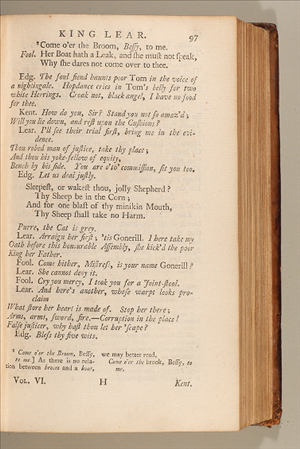 KING LEAR. 97
¹Come o'er the Broom, Bessy, to me.
Fool. Her Boat hath a Leak, and she must not speak,
Why she dares not come over to thee.
Edg. The foul fiend haunts poor Tom in the voice of
a nightingale. Hopdance cries in Tom's belly for two
white Herrings. Croak not, black angel, I have no food
for thee.
Kent. How do you, Sir? Stand you not so amaz'd;
Will you lie down, and rest upon the Cushions?
Lear. I'll see their trial first, bring me in the evi-
dence.
Thou robed man of justice, take thy place;
And thou his yoke-fellow of equity,
Bench by his side. You are o' th' commission, sit you too.
Edg. Let us deal justly.
Sleepest, or wakest thou, jolly Shepherd?
Thy Sheep be in the Corn;
And for one blast of thy minikin Mouth,
Thy Sheep shall take no Harm.
Purre, the Cat is grey.
Lear. Arraign her first; 'tis Gonerill. I here take my
Oath before this honourable Assembly, she kick'd the poor
King her Father.
Fool. Come hither, Mistress, is your name Gonerill?
Lear. She cannot deny it.
Fool. Cry you mercy, I took you for a Joint-stool.
Lear. And here's another, whose warpt looks pro-
claim
What store her heart is made of. Stop her there;
Arms, arms, sword, fire.—Corruption in the place!
False justicer, why hast thou let her 'scape?
Edg. Bless thy five wits.
¹ Come o'er the Broom, Bessy,
to me.] As there is no rela-
tion between broom and a boat,
we may better read,
Come o'er the brook, Bessy, to
me.
VOL. VI. H Kent.